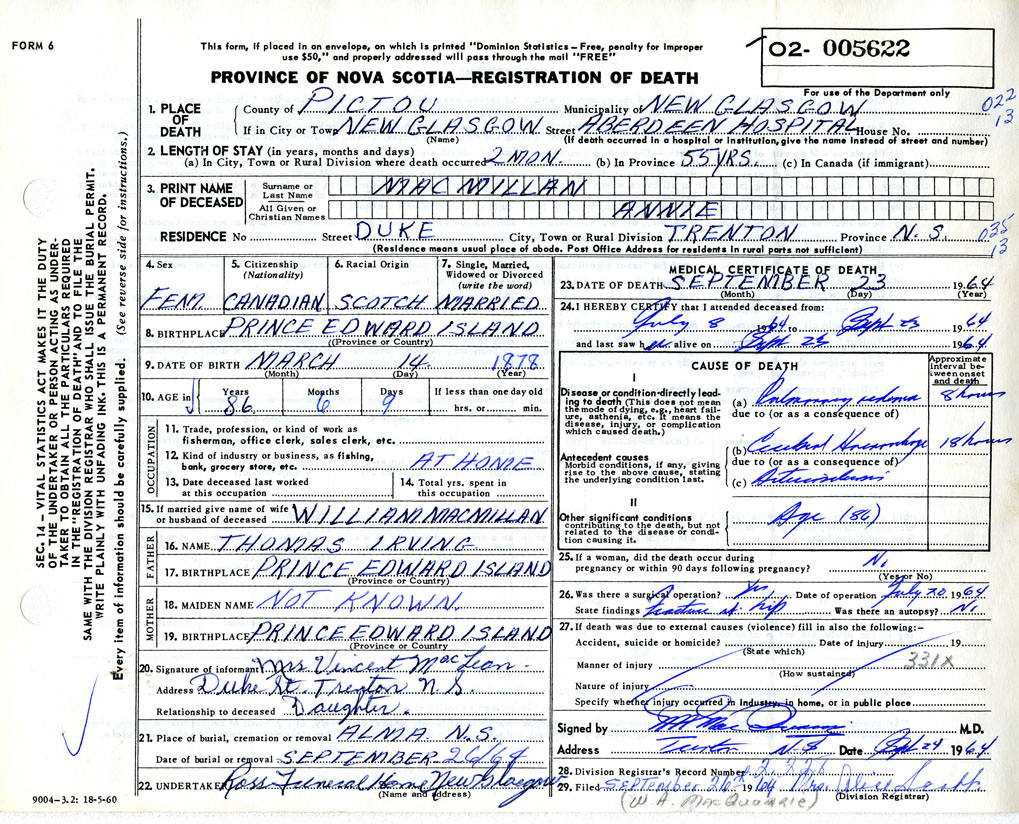 FORM 6
This form, if placed in an envelope, on which is printed "Dominion Statistics – Free, penalty for improper
use $50," and properly addressed will pass through the mail "FREE"
02- 005622
PROVINCE OF NOVA SCOTIA—REGISTRATION OF DEATH
For use of the Department only
1. PLACE OF DEATH
County of PICTOU Municipality of NEW GLASGOW 022
If in City or Town NEW GLASGOW Street ABERDEEN HOSPITAL House No. 13
(Name) (If death occurred in a hospital or institution, give the name instead of street and number)
2. LENGTH OF STAY (in years, months and days)
(a) In City, Town or Rural Division where death occurred 2 MON. (b) In Province 55 YRS. (c) In Canada (if immigrant)
3. PRINT NAME OF DECEASED
Surname or Last Name MACMILLAN
All Given or Christian Names ANNIE
RESIDENCE No Street DUKE City, Town or Rural Division TRENTON Province N.S. 035 13
(Residence means usual place of abode. Post Office Address for residents in rural parts not sufficient)
4. Sex
FEM.
5. Citizenship
(Nationality)
CANADIAN
6. Racial Origin
SCOTCH
7. Single, Married, Widowed or Divorced
(write the word)
MARRIED
8. BIRTHPLACE PRINCE EDWARD ISLAND
(Province or Country)
9. DATE OF BIRTH MARCH 14 1878
(Month) (Day) (Year)
10. AGE in Years Months Days If less than one day old
86 6 9 hrs. or min.
OCCUPATION
11. Trade, profession, or kind of work as
fisherman, office clerk, sales clerk, etc.
12. Kind of industry or business, as fishing,
bank, grocery store, etc. AT HOME
13. Date deceased last worked
at this occupation
14. Total yrs. spent in
this occupation
15. If married give name of wife
or husband of deceased WILLIAM MACMILLAN
FATHER
16. NAME THOMAS IRVING
17. BIRTHPLACE PRINCE EDWARD ISLAND
(Province or Country)
MOTHER
18. MAIDEN NAME NOT KNOWN.
19. BIRTHPLACE PRINCE EDWARD ISLAND
(Province or Country
20. Signature of informant Mrs Vincent MacLean.
Address Duke St. Trenton N.S.
Relationship to deceased Daughter.
21. Place of burial, cremation or removal ALMA N.S.
Date of burial or removal SEPTEMBER 26/64
22. UNDERTAKER Ross Funeral Home New Glasgow
(Name and address)
9004–3.2: 18-5-60
MEDICAL CERTIFICATE OF DEATH
23. DATE OF DEATH SEPTEMBER 23 1964
(Month) (Day) (Year)
24. I HEREBY CERTIFY that I attended deceased from:
July 8 1964 to Sept 23 1964
and last saw her alive on Sept 23 1964
CAUSE OF DEATH
Approximate interval between onset and death
I
Disease or condition directly leading to death (This does not mean the mode of dying, e.g., heart failure, asthenia, etc. It means the disease, injury, or complication which caused death.)
(a) Pulmonary edema 8 hours
due to (or as a consequence of)
Antecedent causes
Morbid conditions, if any, giving rise to the above cause, stating the underlying condition last.
(b) Cerebral Haemorrhage 18 hours
due to (or as a consequence of)
(c) Arteriosclerosis
II
Other significant conditions
contributing to the death, but not related to the disease or condition causing it.
Age (86)
25. If a woman, did the death occur during
pregnancy or within 90 days following pregnancy? No
(Yes or No)
26. Was there a surgical operation? Yes Date of operation July 20 1964
State findings fracture of hip Was there an autopsy? No
27. If death was due to external causes (violence) fill in also the following:–
Accident, suicide or homicide? Date of injury 19
(State which)
331X
Manner of injury
(How sustained)
Nature of injury
Specify whether injury occurred in industry, in home, or in public place
Signed by M.D.
Address Trenton N S Date Sept 24 1964
28. Division Registrar's Record Number
29. Filed September 26 1964 Mrs.
(Division Registrar)
(W.A. MacQuarrie)
SEC. 14 – VITAL STATISTICS ACT MAKES IT THE DUTY
OF THE UNDERTAKER OR PERSON ACTING AS UNDER-
TAKER TO OBTAIN ALL THE PARTICULARS REQUIRED
IN THE "REGISTRATION OF DEATH" AND TO FILE THE
SAME WITH THE DIVISION REGISTRAR WHO SHALL ISSUE THE BURIAL PERMIT.
WRITE PLAINLY WITH UNFADING INK. THIS IS A PERMANENT RECORD.
Every item of information should be carefully supplied. (See reverse side for instructions.)